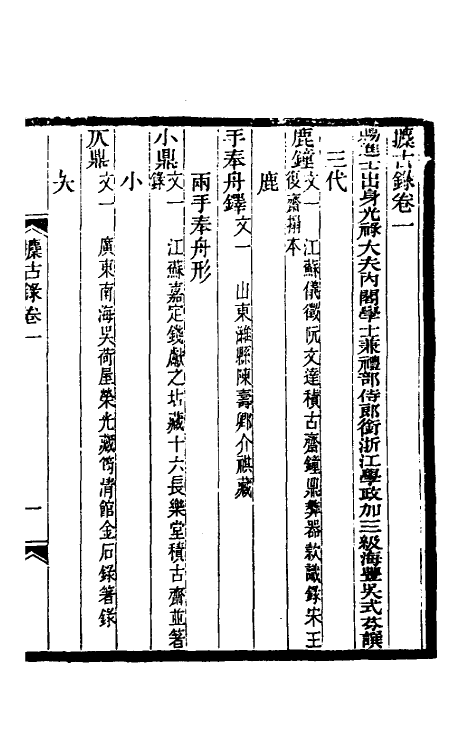 攈古錄卷一
賜進士出身光祿大夫內閣學士兼禮部侍郎銜浙江學政加三級海豐吳式芬譔
三代
鹿鐘 文一 江蘇儀徵阮文達積古齋鐘鼎彝器款識錄宋王
復齋搨本
鹿
手奉舟鐸 文一 山東濰縣陳壽卿介祺藏
兩手奉舟形
小鼎 文一 江蘇嘉定錢獻之坫藏十六長樂堂積古齋並著
錄
小
仄鼎 文一 廣東南海吳荷屋榮光藏筠清館金石錄著錄
攈古錄卷一
一